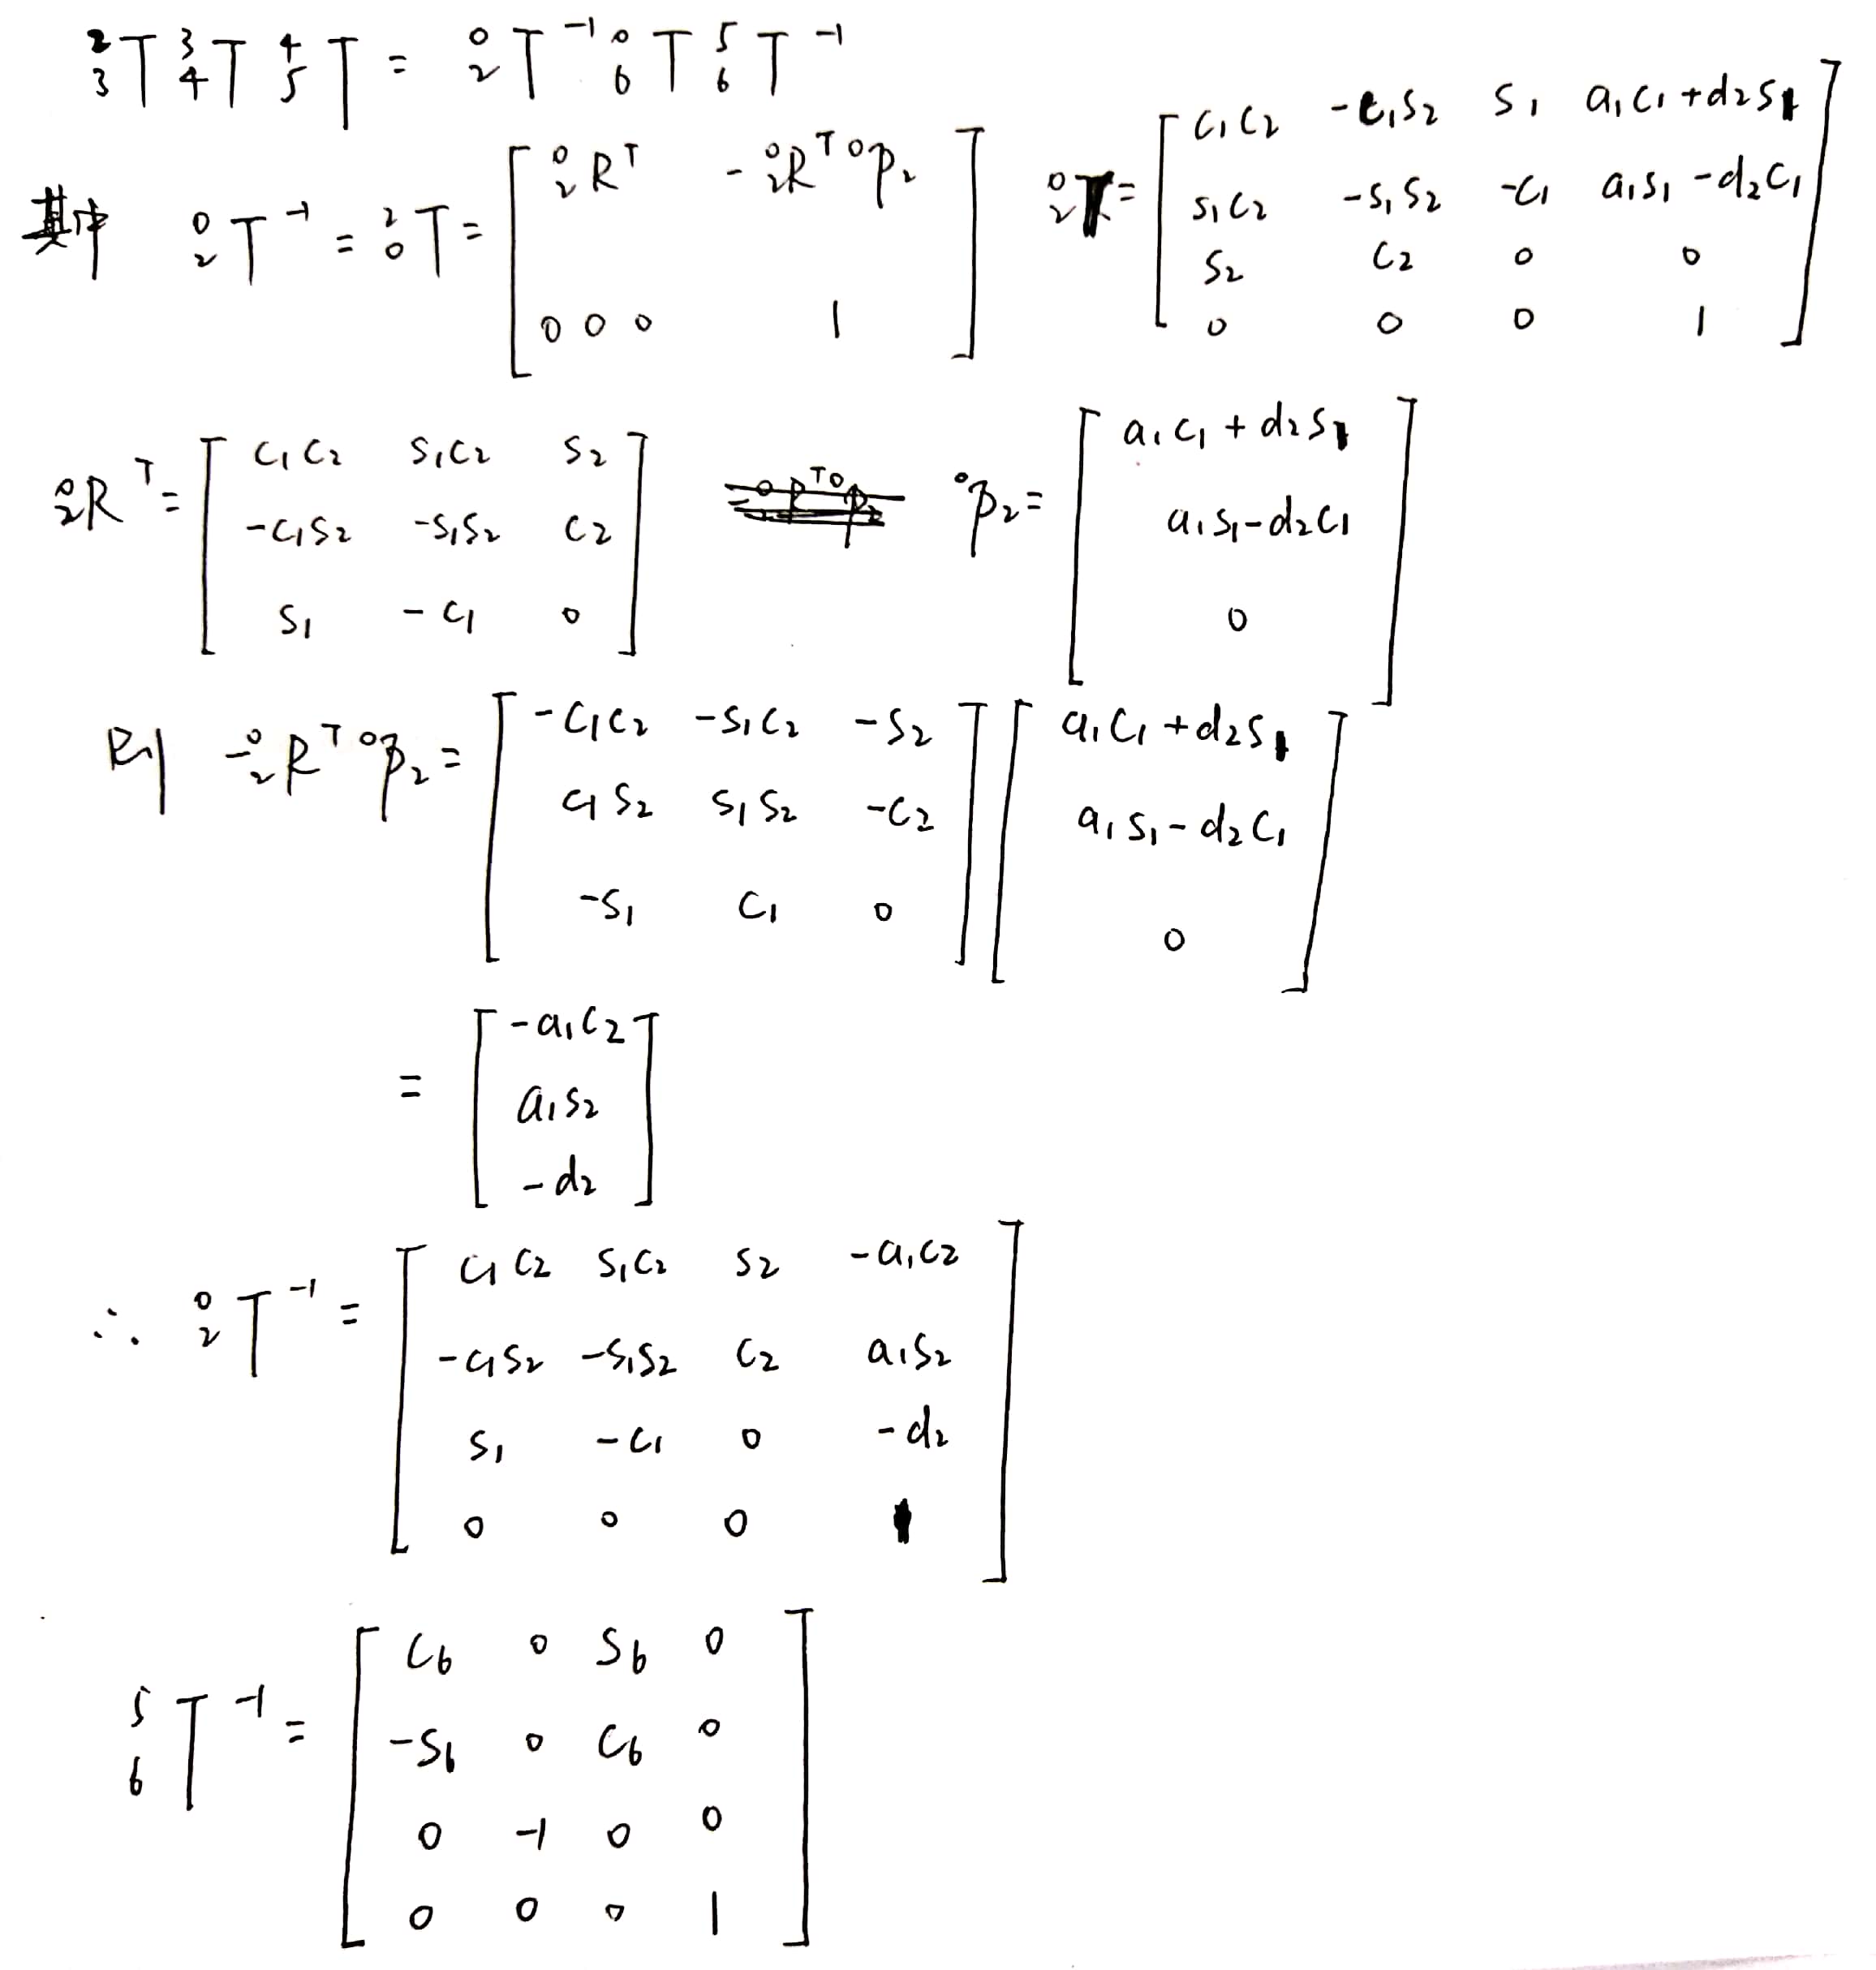 $^2_3T\,^3_4T\,^4_5T = \,^0_2T^{-1}\,^0_6T\,^5_6T^{-1}$
其中 $^0_2T^{-1} = \,^2_0T = \begin{bmatrix} ^0_2R^T & -^0_2R^T\,^0p_2 \\ 0\ 0\ 0 & 1 \end{bmatrix}$ $^0_2T = \begin{bmatrix} c_1c_2 & -c_1s_2 & s_1 & a_1c_1+d_2s_1 \\ s_1c_2 & -s_1s_2 & -c_1 & a_1s_1-d_2c_1 \\ s_2 & c_2 & 0 & 0 \\ 0 & 0 & 0 & 1 \end{bmatrix}$
$^0_2R^T = \begin{bmatrix} c_1c_2 & s_1c_2 & s_2 \\ -c_1s_2 & -s_1s_2 & c_2 \\ s_1 & -c_1 & 0 \end{bmatrix}$ $^0p_2 = \begin{bmatrix} a_1c_1+d_2s_1 \\ a_1s_1-d_2c_1 \\ 0 \end{bmatrix}$
则 $-^0_2R^T\,^0p_2 = \begin{bmatrix} -c_1c_2 & -s_1c_2 & -s_2 \\ c_1s_2 & s_1s_2 & -c_2 \\ -s_1 & c_1 & 0 \end{bmatrix} \begin{bmatrix} a_1c_1+d_2s_1 \\ a_1s_1-d_2c_1 \\ 0 \end{bmatrix}$
$= \begin{bmatrix} -a_1c_2 \\ a_1s_2 \\ -d_2 \end{bmatrix}$
$\therefore \,^0_2T^{-1} = \begin{bmatrix} c_1c_2 & s_1c_2 & s_2 & -a_1c_2 \\ -c_1s_2 & -s_1s_2 & c_2 & a_1s_2 \\ s_1 & -c_1 & 0 & -d_2 \\ 0 & 0 & 0 & 1 \end{bmatrix}$
$^5_6T^{-1} = \begin{bmatrix} c_6 & 0 & s_6 & 0 \\ -s_6 & 0 & c_6 & 0 \\ 0 & -1 & 0 & 0 \\ 0 & 0 & 0 & 1 \end{bmatrix}$